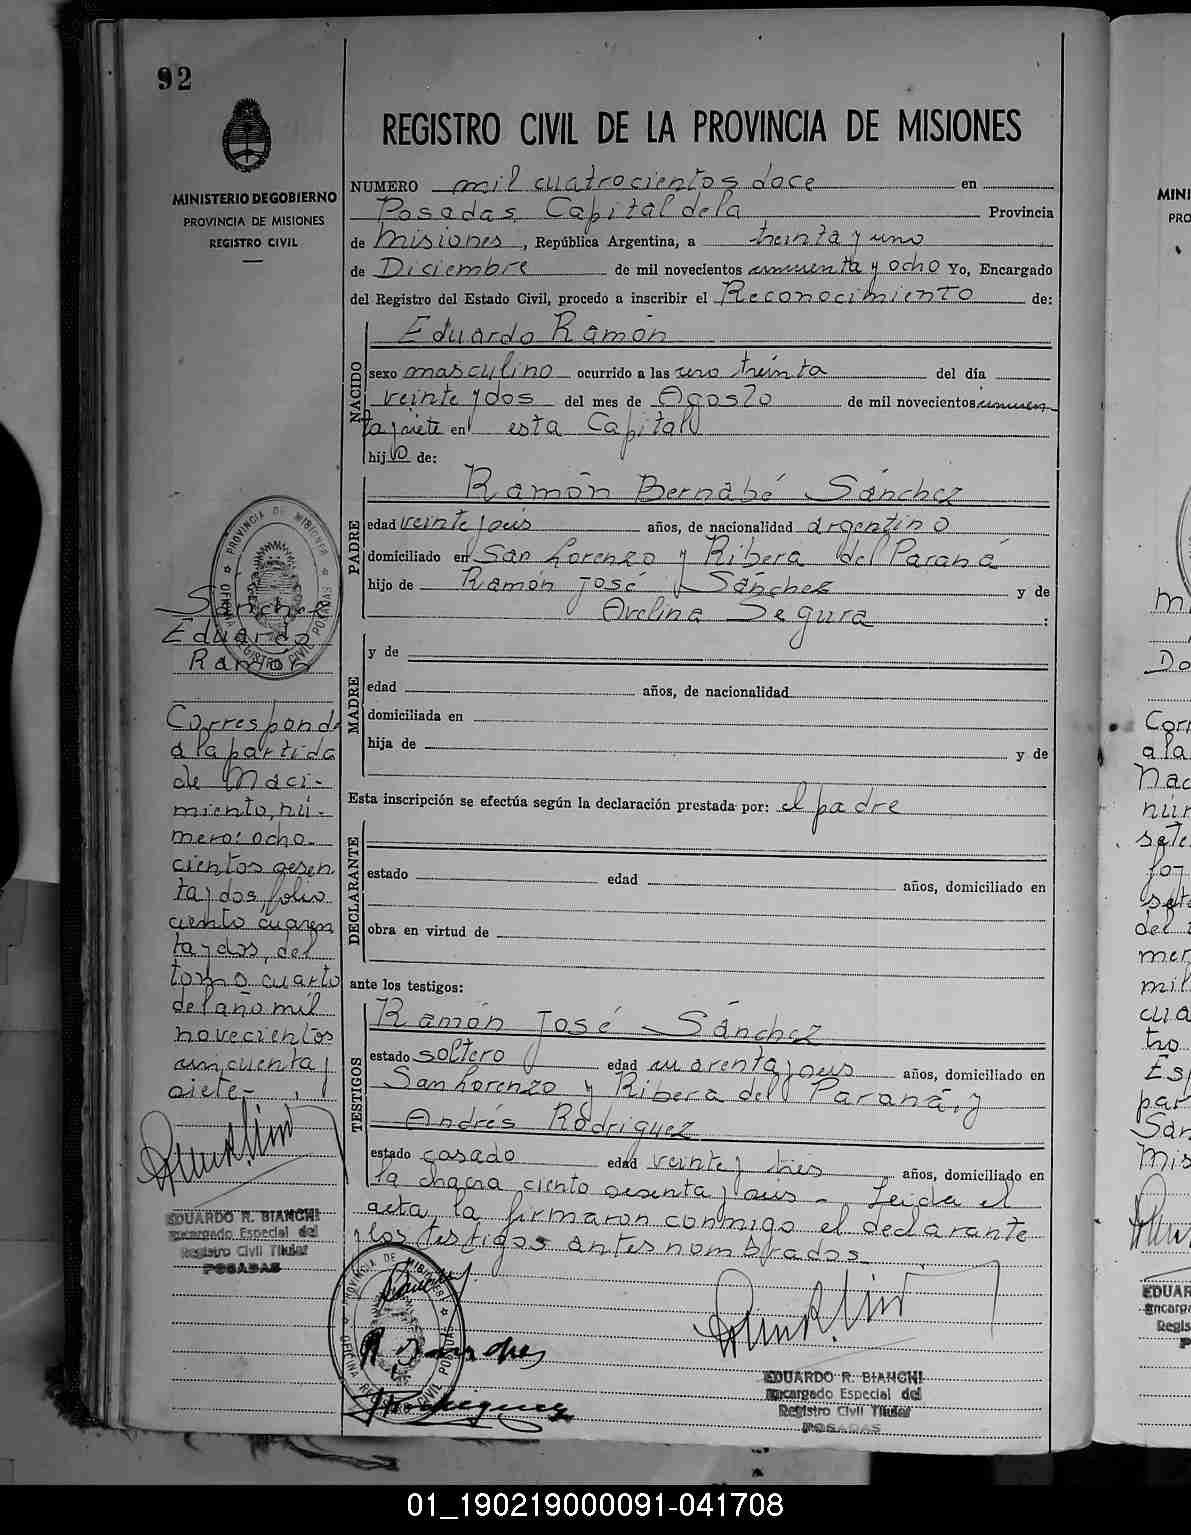 92
MINISTERIO DE GOBIERNO
PROVINCIA DE MISIONES
REGISTRO CIVIL
REGISTRO CIVIL DE LA PROVINCIA DE MISIONES
NUMERO mil cuatrocientos doce en
Posadas Capital de la Provincia
de Misiones, República Argentina, a treinta y uno
de Diciembre de mil novecientos cincuenta y ocho Yo, Encargado
del Registro del Estado Civil, procedo a inscribir el Reconocimiento de:
NACIDO
Eduardo Ramón
sexo masculino ocurrido a las uno treinta del día
veinte y dos del mes de Agosto de mil novecientos cincuen-
ta y siete en esta Capital
hijo de:
PADRE
Ramón Bernabé Sánchez
edad veinte y seis años, de nacionalidad argentino
domiciliado en San Lorenzo y Ribera del Paraná
hijo de Ramón José Sánchez y de
Avelina Segura :
MADRE
y de
edad años, de nacionalidad
domiciliada en
hija de y de
Esta inscripción se efectúa según la declaración prestada por: el padre
DECLARANTE
estado edad años, domiciliado en
obra en virtud de
ante los testigos:
TESTIGOS
Ramón José Sánchez
estado soltero edad cuarenta y seis años, domiciliado en
San Lorenzo y Ribera del Paraná, y
Andrés Rodriguez
estado casado edad veinte y tres años, domiciliado en
la chacra ciento sesenta y seis - Leida el
acta, la firmaron conmigo el declarante
y los testigos antes nombrados
PROVINCIA DE MISIONES
OFICINA REGISTRO CIVIL POSADAS
Sánchez
Eduardo
Ramón
Corresponde
a la partida
de Naci-
miento, nú-
mero: ocho-
cientos sesen
ta y dos, folio
ciento cuaren
ta y dos, del
tomo cuarto
del año mil
novecientos
cincuenta y
siete-
EDUARDO R. BIANCHI
Encargado Especial del
Registro Civil Titular
POSADAS
PROVINCIA DE MISIONES
OFICINA REGISTRO CIVIL POSADAS
EDUARDO R. BIANCHI
Encargado Especial del
Registro Civil Titular
POSADAS
MINI
PRO
Do
Corr
a la
Nac
núm
sete
del
mer
mil
cua
tro
Esp
par
San
Mis
EDUAR
Encarga
Regis
P
01_190219000091-041708